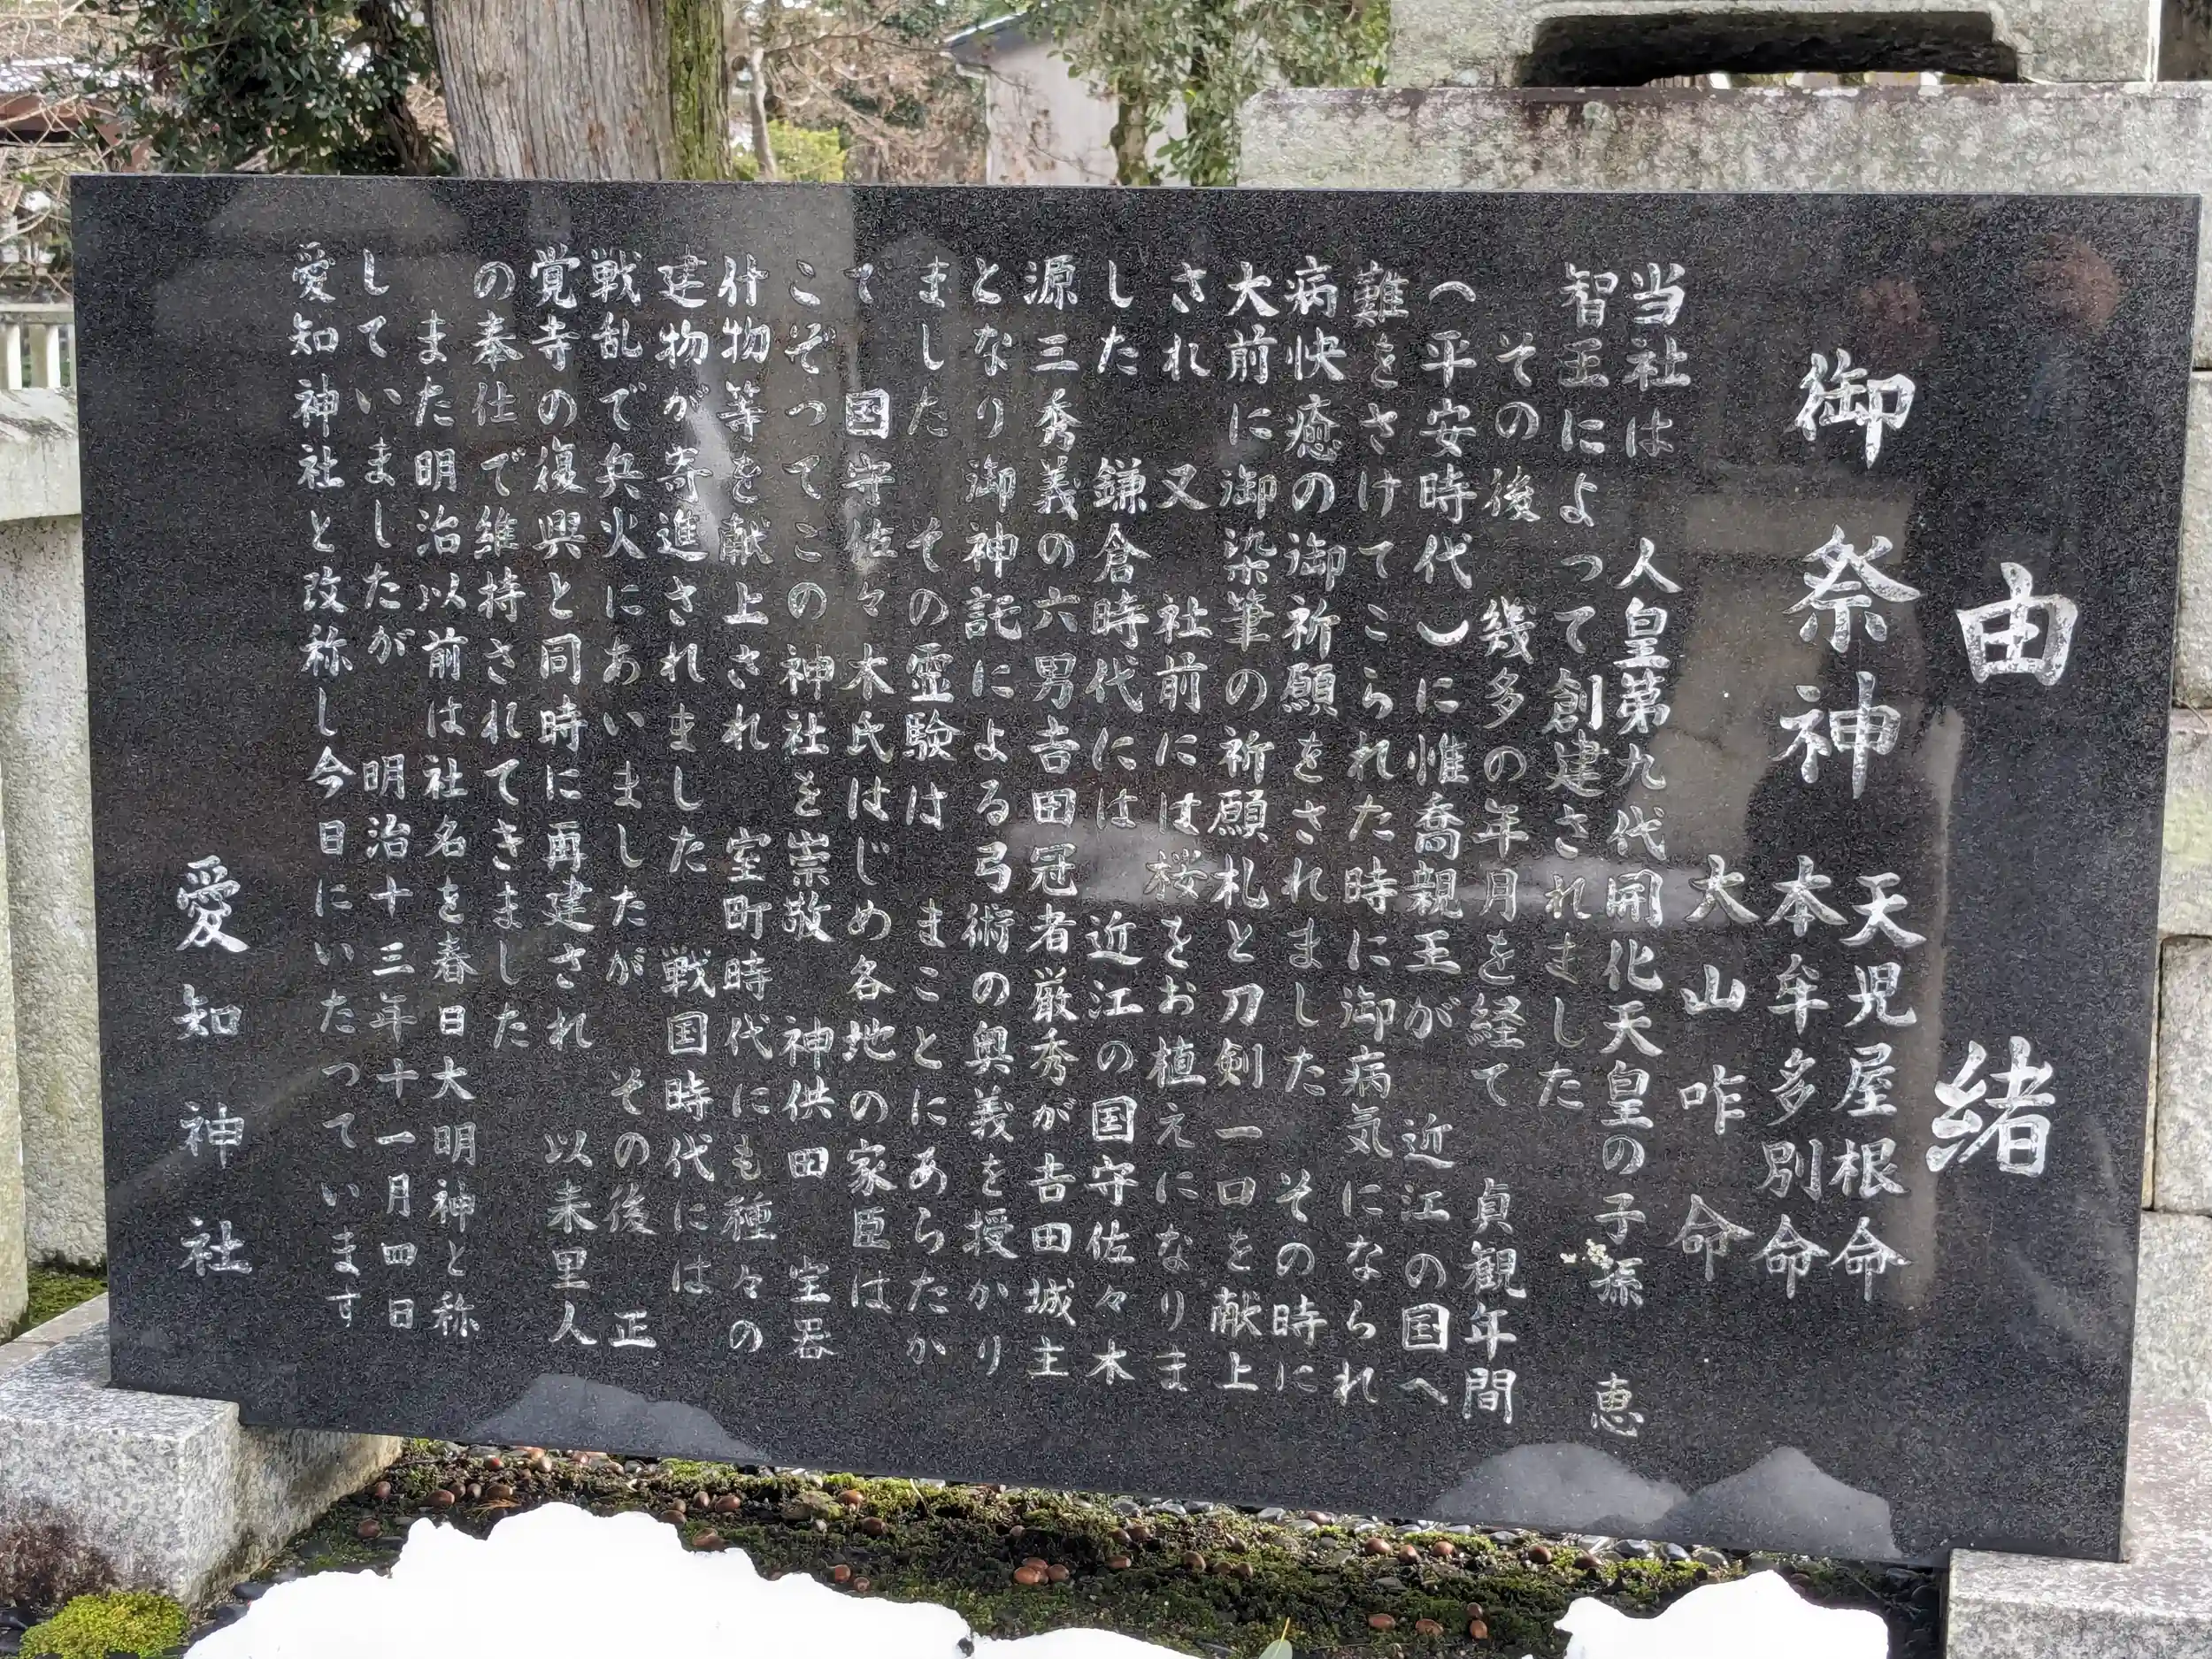 由緒
御祭神 天児屋根命
本牟多別命
大山咋命
当社は 人皇第九代開化天皇の子孫 恵
智王によって創建されました
その後 幾多の年月を経て 貞観年間
(平安時代)に惟喬親王が 近江の国へ
難をさけてこられた時に御病気になられ
病快癒の御祈願をされました その時に
大前に御染筆の祈願札と刀剣一口を献上
され 又 社前には桜をお植えになりま
した 鎌倉時代には 近江の国守佐々木
源三秀義の六男吉田冠者厳秀が吉田城主
となり御神託による弓術の奥義を授かり
ました その霊験は まことにあらたか
で 国守佐々木氏はじめ各地の家臣は
こぞってこの 神社を崇敬 神供田 宝器
什物等を献上され 室町時代にも種々の
建物が寄進されました 戦国時代には
戦乱で兵火にあいましたが その後 正
覚寺の復興と同時に再建され 以来里人
の奉仕で維持されてきました
また明治以前は社名を春日大明神と称
していましたが 明治十三年十一月四日
愛知神社と改称し今日にいたっています
愛知神社